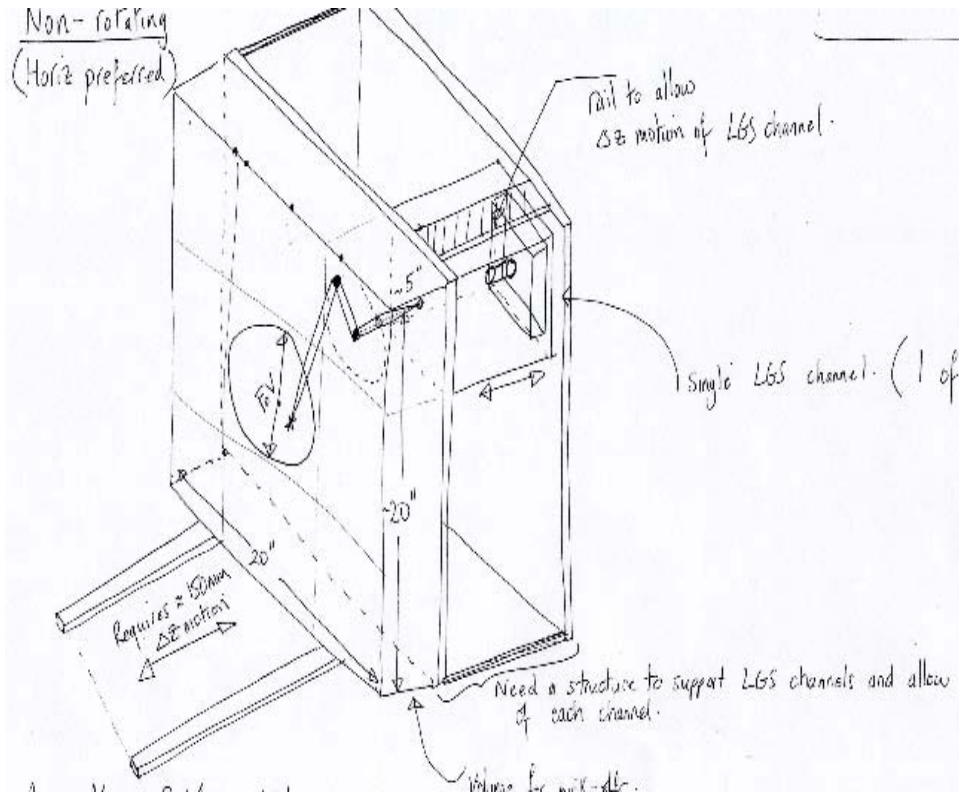 Non-rotating
(Horiz preferred)
rail to allow
Δz motion of LGS channel.
~5"
FoV
single LGS channel. (1 of
~20"
20"
Requires ≈ 150mm
Δz motion
Need a structure to support LGS channels and allow
of each channel.
Volume for pick-off.